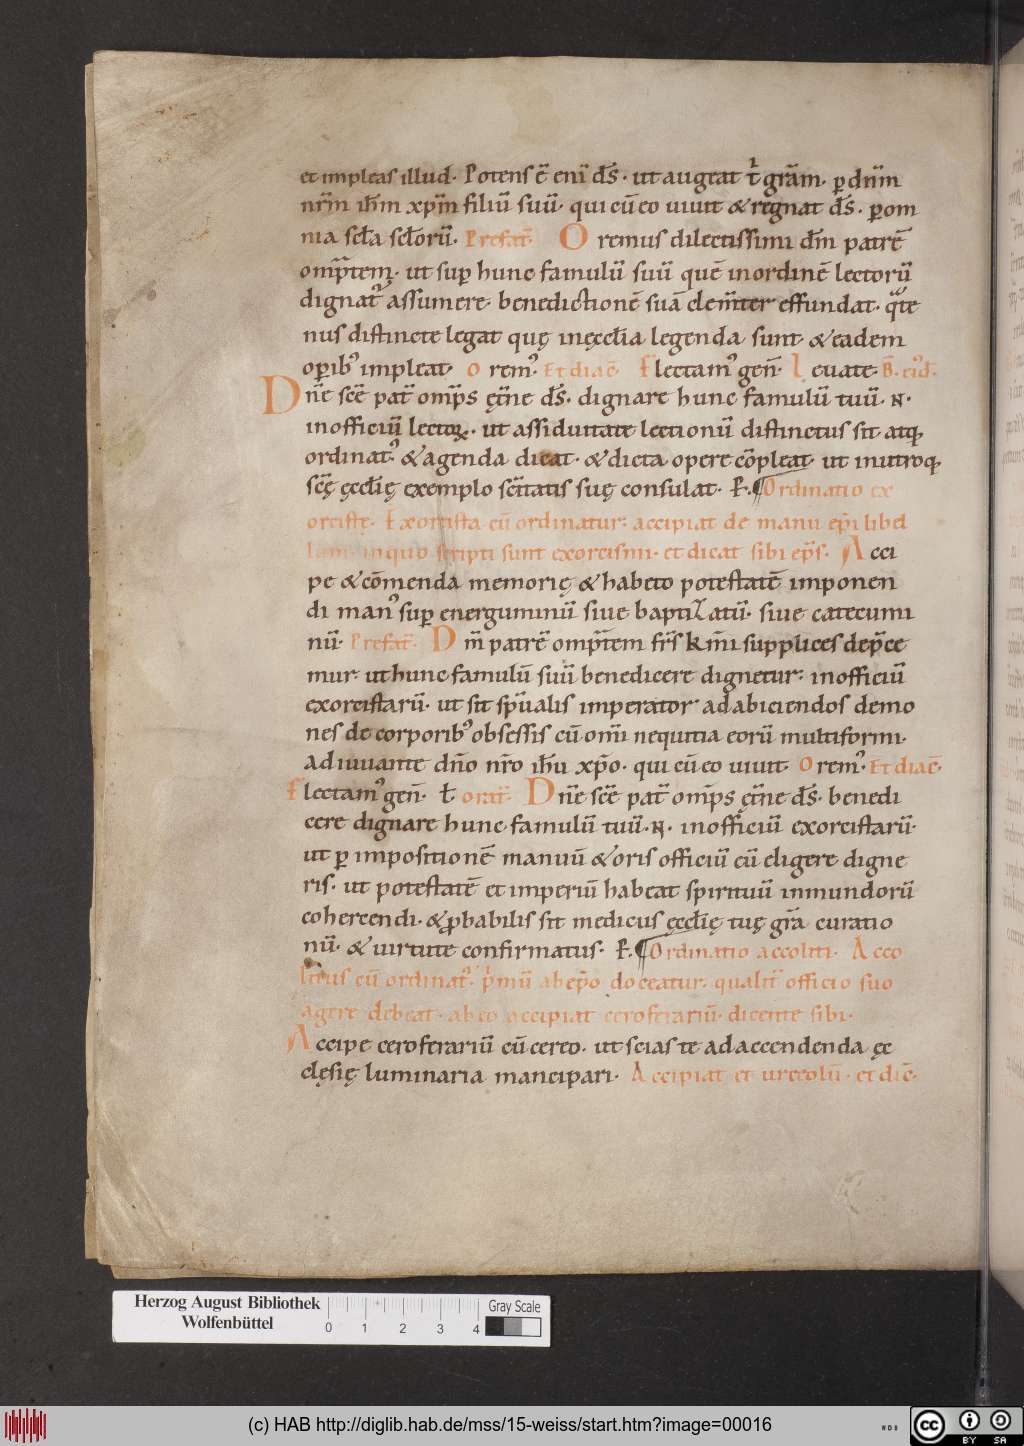 et impleas illud. Potens ē eni d̄s. ut augeat t' grām. p̲ dn̄m
nr̄m ih̄m xp̄m filiū suū. qui cū eo uiuit & regnat d̄s. p̲ om
nia scl̄a scl̄orū. Prefat̄. Oremus dilectissimi dm̄ patrē
omp̄tem. ut sup̲ hunc famulū suū quē in ordinē lectorū
dignat᷒ assumere. benedictionē suā clem̄ter effundat. q̄te
nus distincte legat quę in ęccl̄ia legenda sunt. & eadem
op̲ib᷒ impleat. Orem᷒. Et diac̄. Flectam᷒ gen̄. Leuate. B̄.
Dn̄e sc̄e pat̄ omp̄s ęt̄ne d̄s. dignare hunc famulū tuū. N.
in officiū lectoꝝ. ut assiduitate lectionū distinctus sit atq̨
ordinat᷒. & agenda dicat. & dicta opere cōpleat. ut in utroq̨
sc̄ę ęccl̄ię exemplo sc̄itatis suę consulat. P̲. ¶ Ordinatio ex
orcistę. Exorcista cū ordinatur: accipiat de manu ep̄i libel
lum. in quo scripti sunt exorcismi. et dicat sibi ep̄s. Acci
pe & cōmenda memorię & habeto potestatē imponen
di man᷒ sup̲ energuminū siue baptizatū. siue catecumi
nū. Prefat̄. Dm̄ patrē omp̄tem fr̄s km̄i supplices dep̄ce
mur. ut hunc famulū suū benedicere dignetur: in officiū
exorcistarū. ut sit sp̄ualis imperator ad abiciendos demo
nes de corporib᷒ obsessis cū om̄i nequitia eorū multiformi.
Adiuuante dn̄o nr̄o ih̄u xp̄o. qui cū eo uiuit. Orem᷒. Et diac̄.
Flectam᷒ gen̄. ł orat̄. Dn̄e sc̄e pat̄ omp̄s ęt̄ne d̄s. benedi
cere dignare hunc famulū tuū. N. in officiū exorcistarū.
ut p̲ impositionē manuū & oris officiū eū eligere digne
ris. ut potestatē et imperiū habeat spirituū inmundorū
cohercendi. & p̱babilis sit medicus ęccl̄ię tuę gr̄a curatio
nū. & uirtute confirmatus. P̲. ¶ Ordinatio accoliti. Acco
litus cū ordinat᷒. p̄mū ab ep̄o doceatur. qualit̄ officio suo
agere debeat. ab eo accipiat ceroferariū. dicente sibi.
Accipe ceroferariū cū cereo. ut scias te ad accendenda ęc
clęsię luminaria mancipari. Accipiat et urceolū. et dic̄.
Herzog August Bibliothek
Wolfenbüttel
0 1 2 3 4
Gray Scale
(c) HAB http://diglib.hab.de/mss/15-weiss/start.htm?image=00016
WDB
cc BY SA